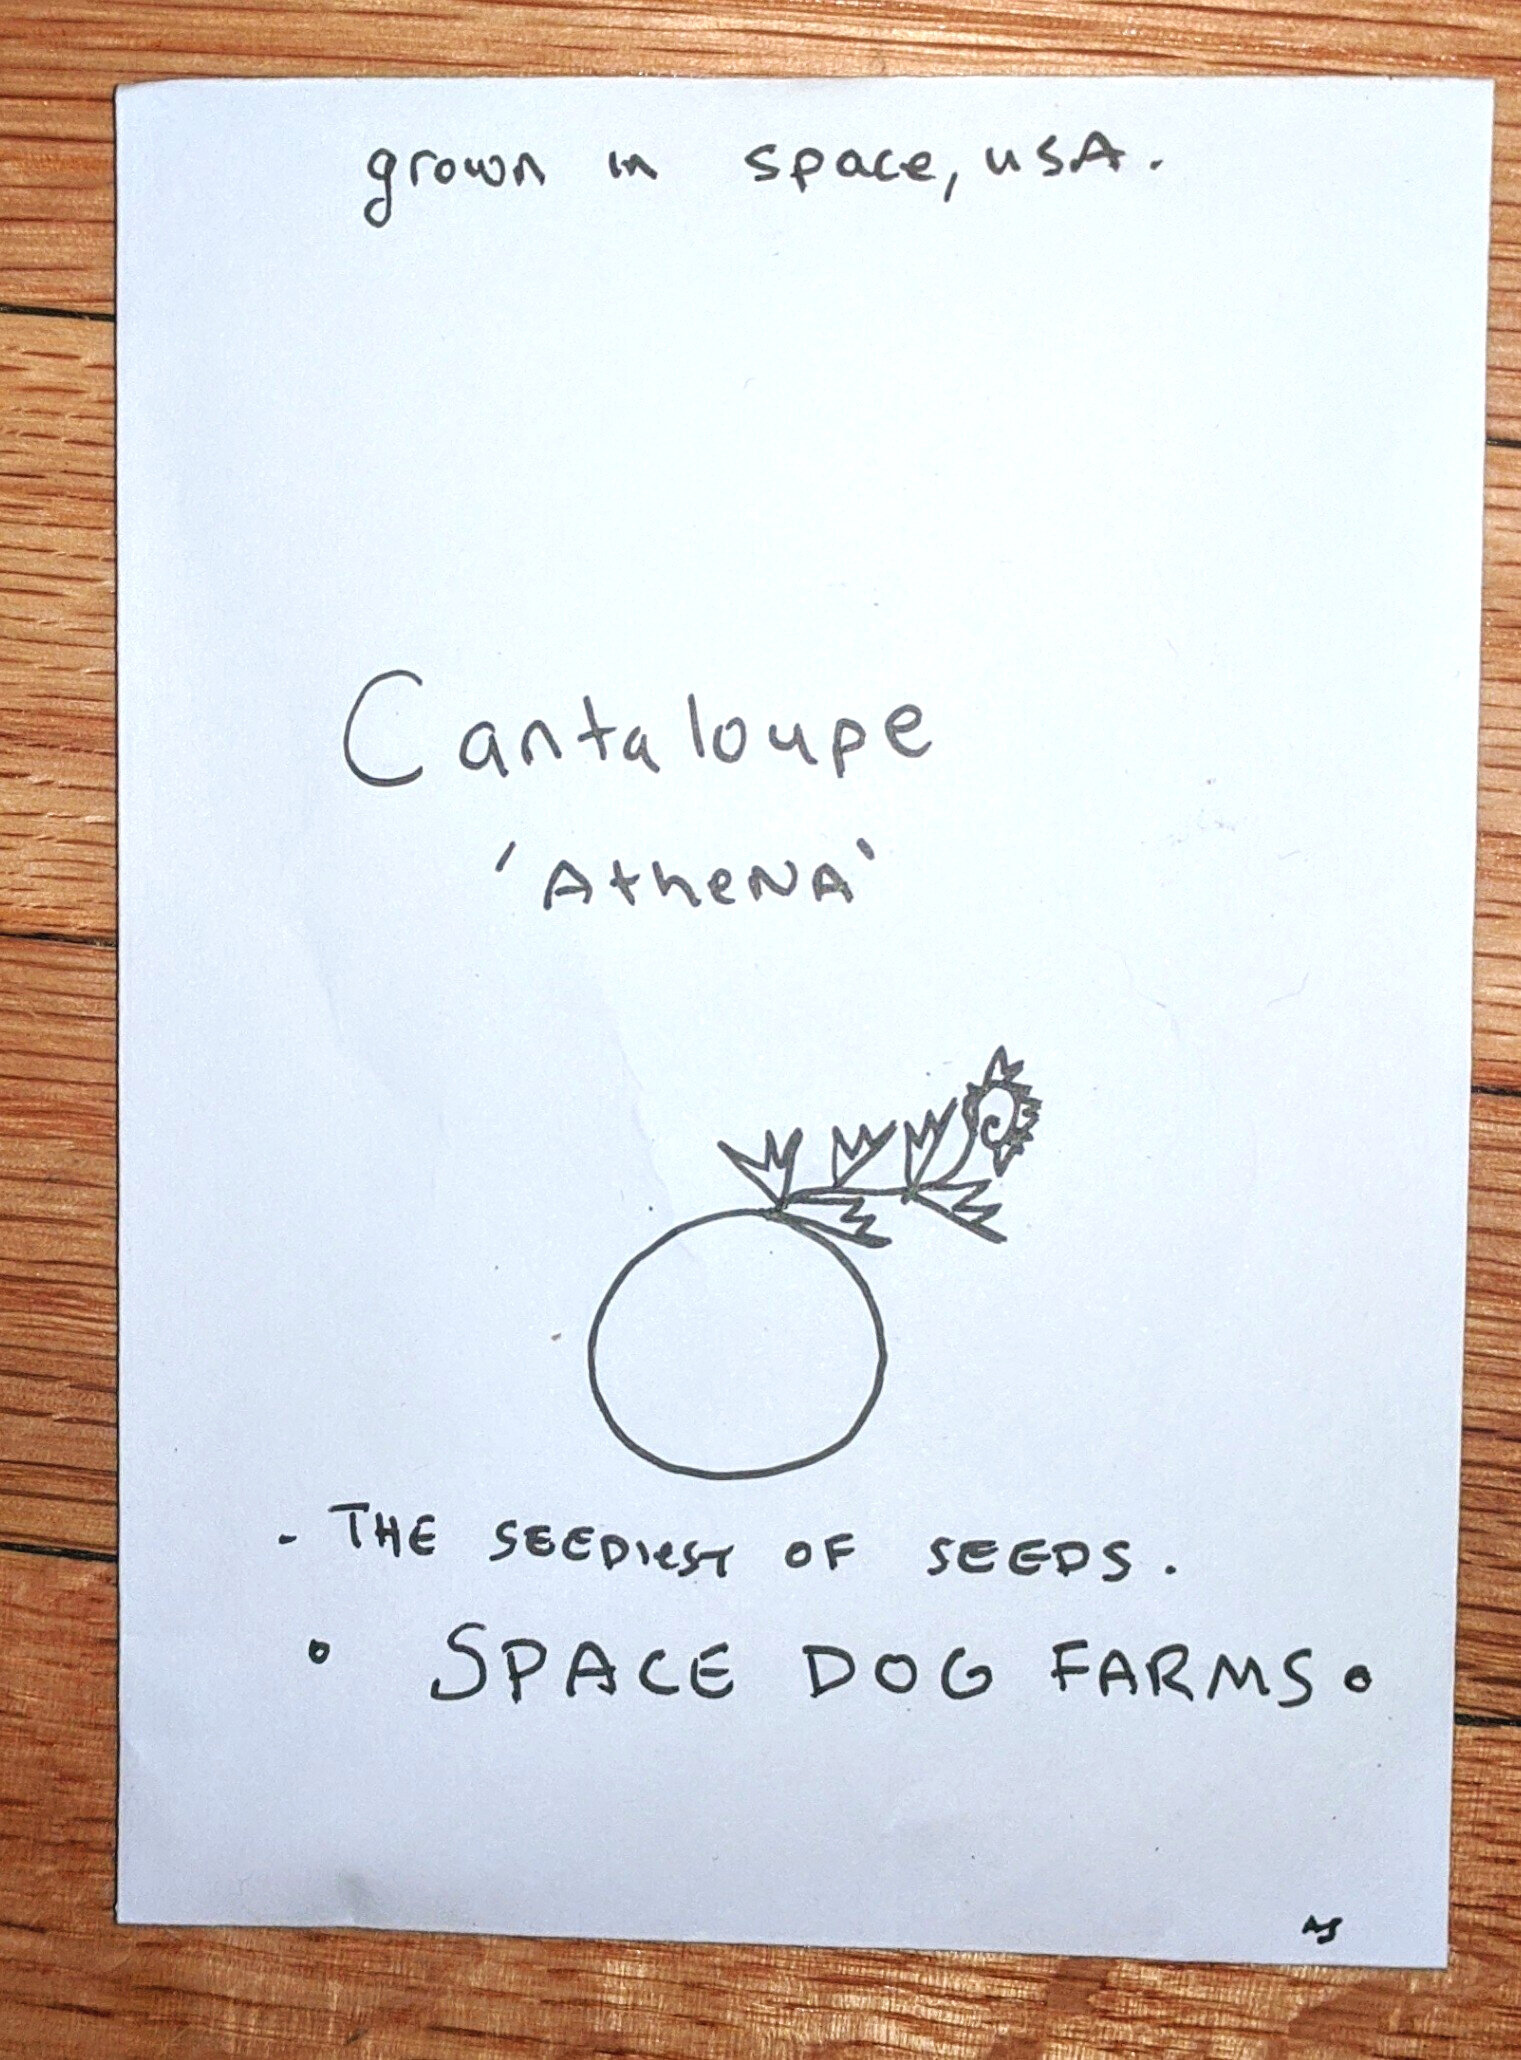 grown in space, USA.
Cantaloupe
'AtheNA'
- THE SEEDIEST OF SEEDS.
• SPACE DOG FARMS •
AS